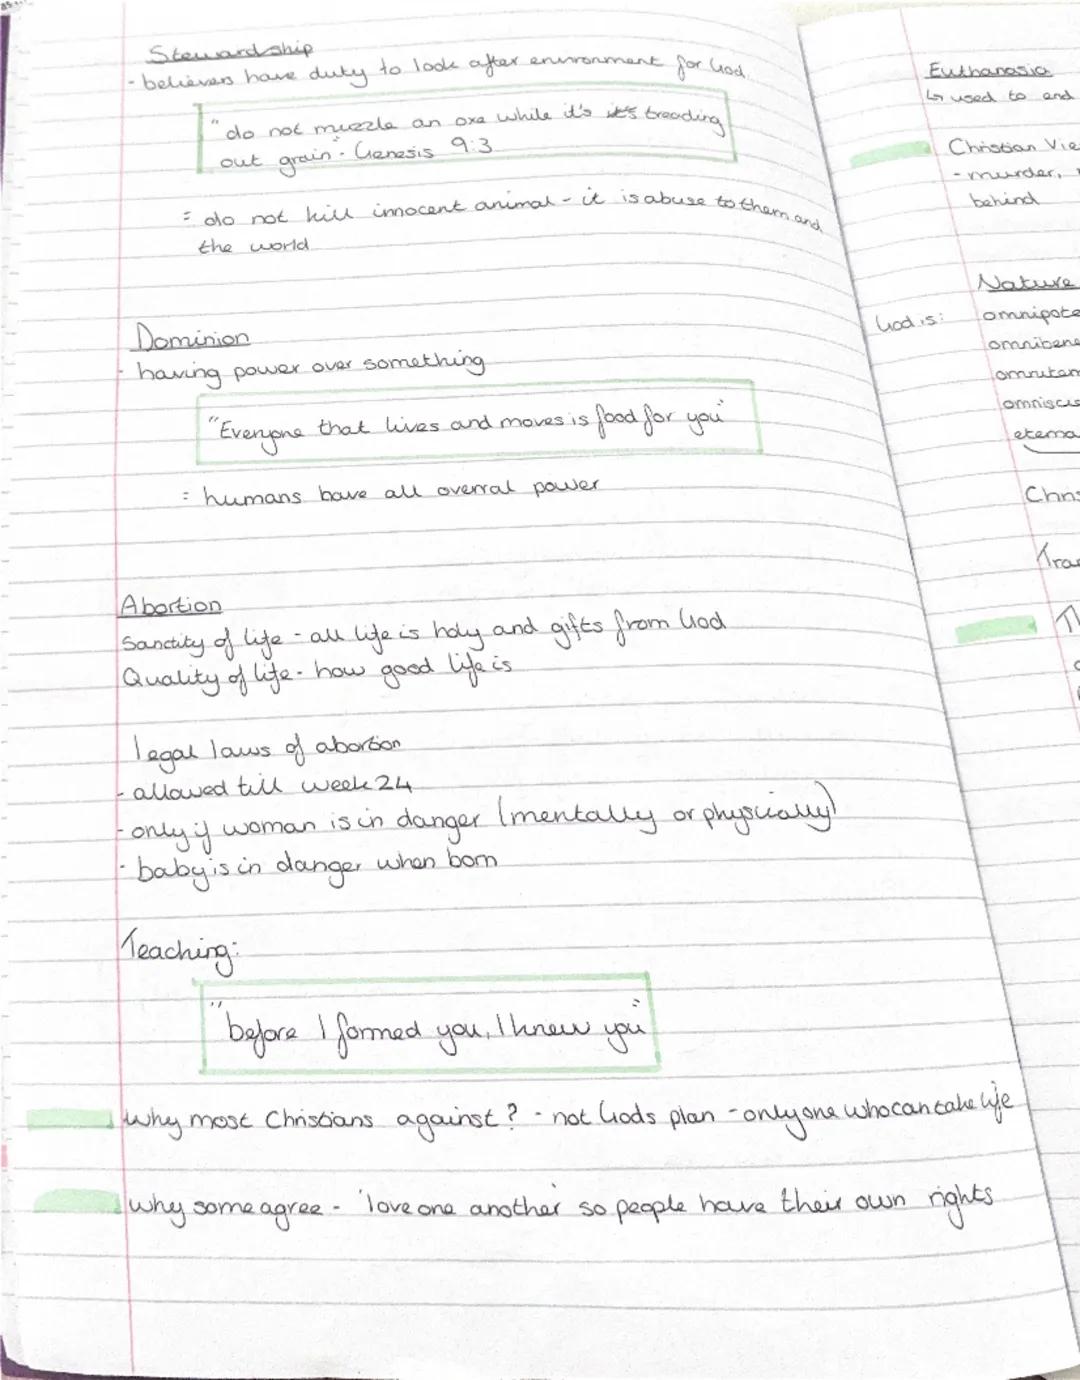 Stewardship
- believers have duty to look after environment for God
"do not muzzle an oxe while it's it's treading
out grain" - Genesis 9:3
= do not kill innocent animal - it is abuse to them and
the world
Dominion
- having power over something
"Everyone that lives and moves is food for you"
= humans have all overral power
Abortion
Sanctity of life - all life is holy and gifts from God
Quality of life - how good life is
legal laws of abortion
- allowed till week 24
- only if woman is in danger (mentally or physically)
- baby is in danger when born
Teaching:
"before I formed you, I knew you"
why most Christians against? - not Gods plan - only one who can take life
why some agree - 'love one another' so people have their own rights
Euthanasia
↳ used to end
Christian Vie
- murder,
behind
Nature
God is: omnipote
omnibene
omniscie
eterna
Chris
Tran
Th